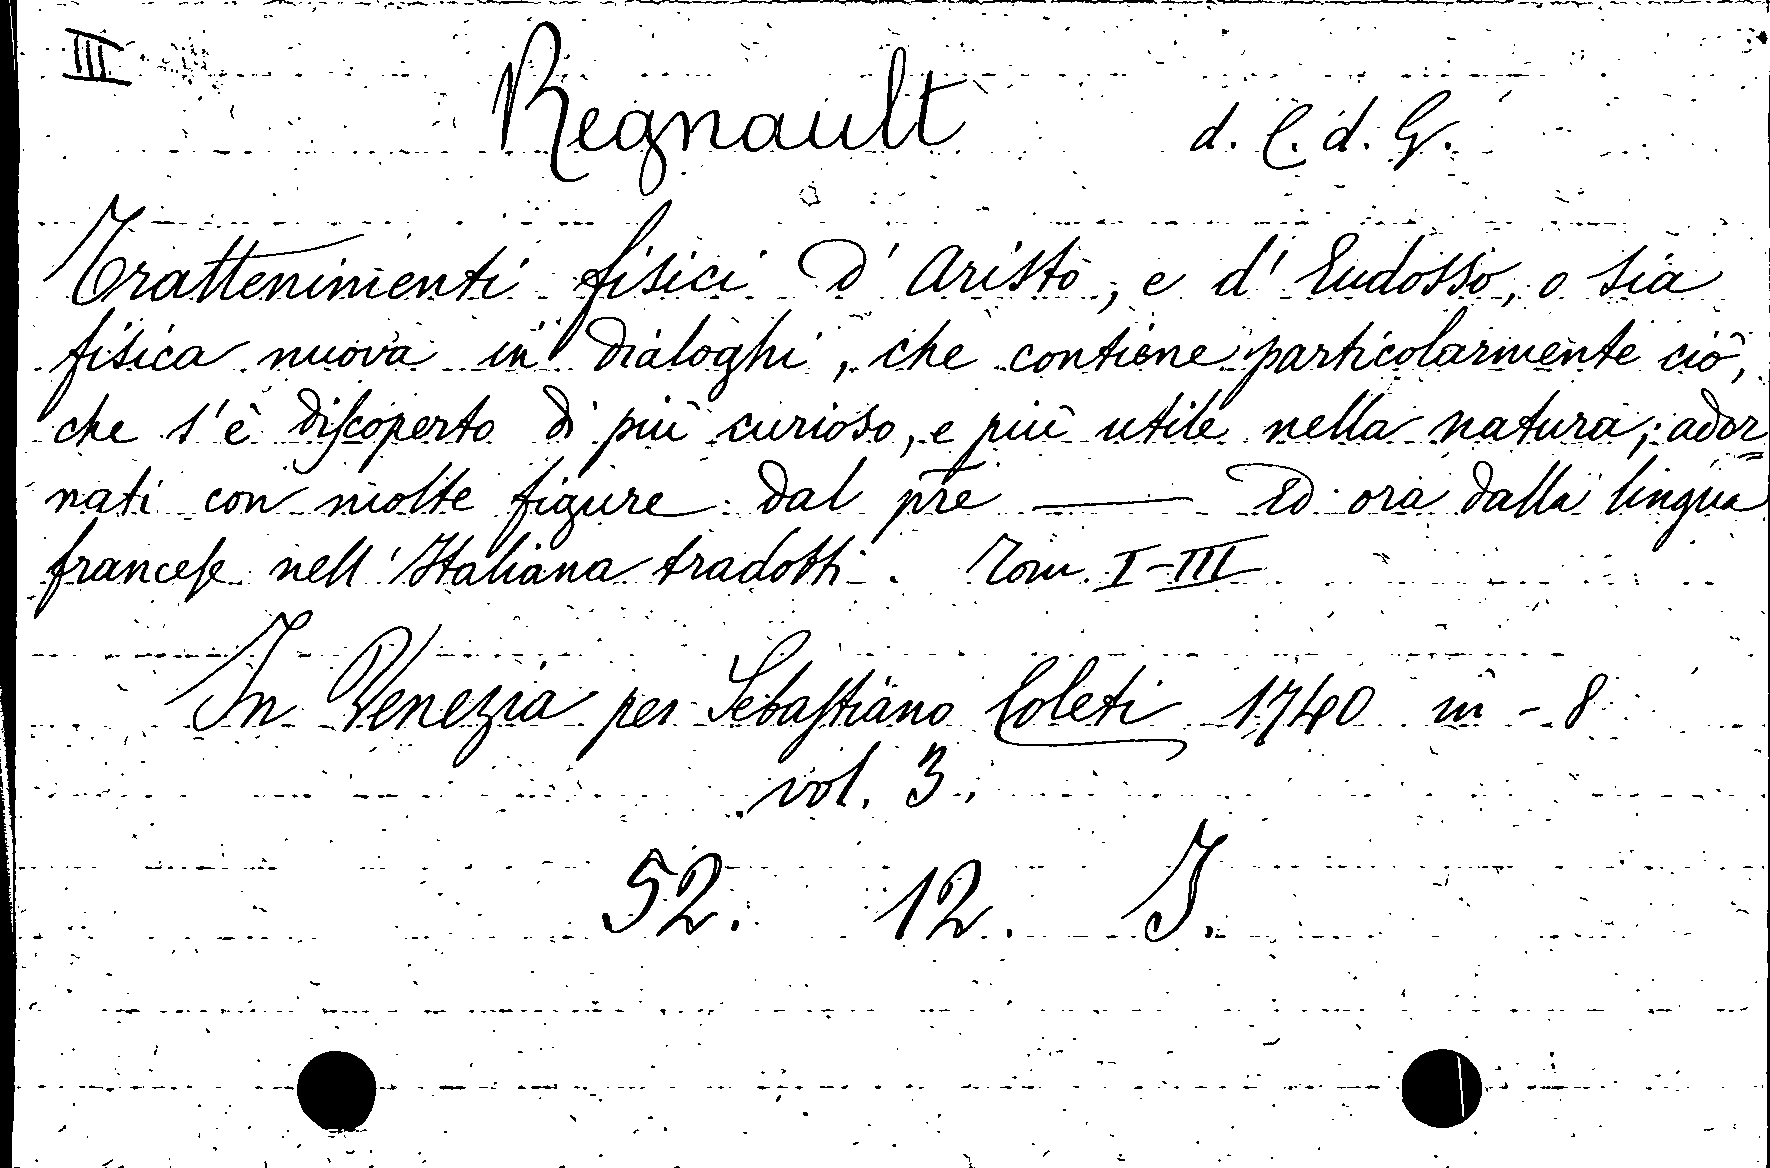 III
Regnault d. C. d. G.
Trattenimenti fisici d' Aristo, e d' Eudosso, o sia
fisica nuova in dialoghi, che contiene particolarmente ciò,
che s'è discoperto di più curioso, e più utile nella natura; ador=
nati con molte figure dal pre —— Ed ora dalla lingua
francese nell' Italiana tradotti. Tom. I-III
In Venezia per Sebastiano Coleti 1740 in - 8
vol. 3.
52. 12. I.